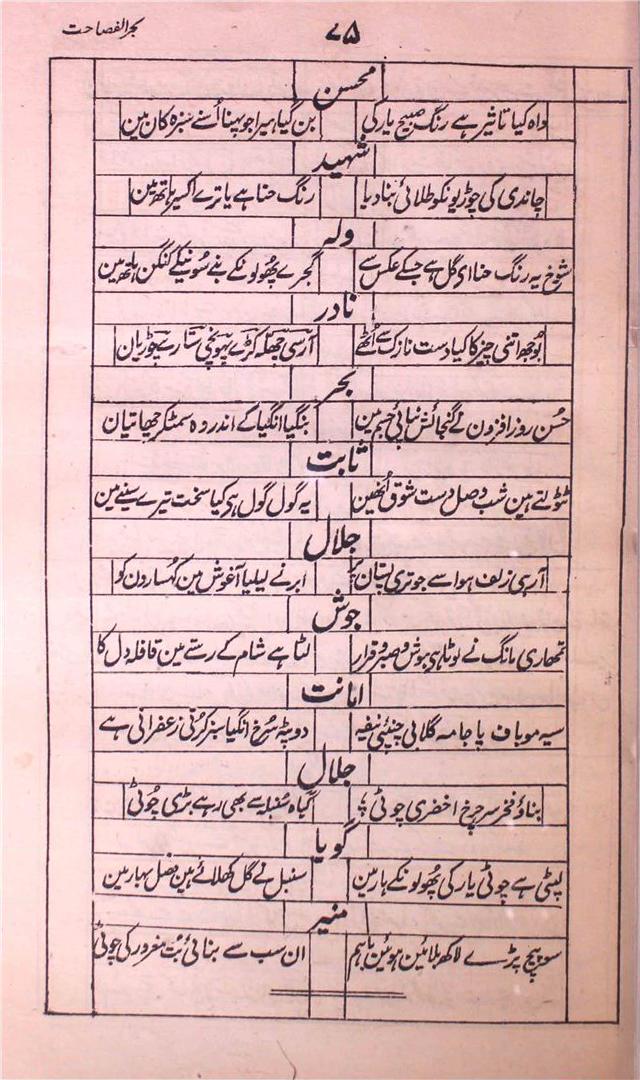 ۷۵ بحر الفصاحت
محسن
واہ کیا تاثیر ہے رنگ صبیح یار کی بن گیا ہیرا جو پہنا اُسنے سبزہ کان مین
شہید
چاندی کی چوڑیونکو طلائی بنا دیا رنگ حنا ہے یا ترے اکسیر ہاتھ مین
ولہ
شوخ یہ رنگ حنا ای گل ہے جسکے عکس سے گجرے پھولونکے بنے سونیکے کنگن ہاتھ مین
نادر
بوجھ اتنی چیز کا کیا دست نازک سے اُٹھے آرسی چھلہ کڑے پہونچی ستارے چوڑیان
بحر
حُسن روز افزون نے گنجائش نپائی جسم مین بنگیا انگیا کے اندر وہ سمٹکر چھاتیان
ثابت
ٹٹولتے ہین شب وصل دست شوق اُنھین یہ گول گول ہی کیا سخت تیرے سینے مین
جلال
آرہی زلف ہوا سے جو تری پستان پر ابر نے لیلیا آغوش مین کہسارون کو
جوش
تمھاری مانگ نے لوٹا ہی ہوش و صبر و قرار لٹا ہے شام کے رستے مین قافلہ دل کا
امانت
سیہ موباف پاجامہ گلابی چنپئی نیفہ دوپٹہ سُرخ انگیا سبز کرتی زعفرانی ہے
جلال
بناؤ فخر سر چرخ اخضری چوٹی گیاہ سُنبلہ سے بھی رہے بڑی چوٹی
گویا
لپٹی ہے چوٹی یار کی پھولونکے ہار مین سنبل نے گل کھلائے ہین فصل بہار مین
منیر
سو پیچ پڑے لاکھ بلائین ہوئین باہم ان سب سے بنائی بُت مغرور کی چوٹی